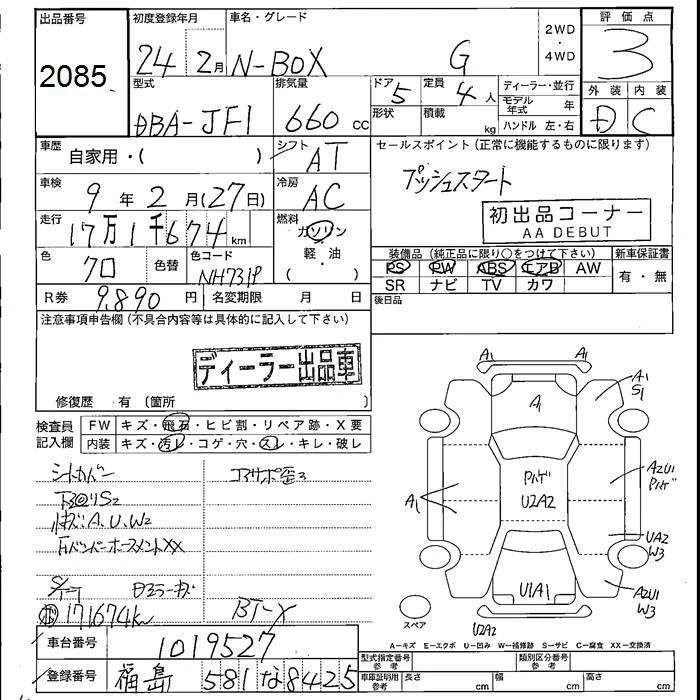 出品番号
2085
初度登録年月
24 2月
車名・グレード
N-BOX G
2WD
・
4WD
評価点
3
外装 内装
D C
型式
DBA-JF1
排気量
660 cc
ドア
5
定員
4 人
形状
積載
kg
ディーラー・並行
モデル年式 年
ハンドル 左・右
車歴
自家用・( )
シフト
AT
車検
9 年 2 月(27日)
冷房
AC
走行
17万1千674 km
燃料
ガソリン
・
軽・油
( )
色
クロ
色替
色コード
NH731P
R券 9,890 円
名変期限 月 日
セールスポイント(正常に機能するものに限ります)
プッシュスタート
初出品コーナー
AA DEBUT
装備品(純正品に限り○をつけて下さい)
PS PW ABS エアB AW
SR ナビ TV カワ
新車保証書
有・無
後日品
注意事項申告欄(不具合内容等は具体的に記入して下さい)
ディーラー出品車
修復歴 有 〔箇所 〕
検査員記入欄
FW キズ・飛石・ヒビ割・リペア跡・X要
内装 キズ・汚レ・コゲ・穴・スレ・キレ・破レ
シートカバー
A、U、W2
XX
171674km
コアサポ歪
車台番号
1019527
登録番号
福島 581 な 8425
A1 A1
A1
S1
A
A1
U2A2
A2U1
UA2
W3
U1A1
A2U1
W3
U2A2
スペア
A-キズ E-エクボ U-凹み W-補修跡 S-サビ C-腐食 XX-交換済
型式指定番号
参考
類別区分番号
参考
車庫証明用
参考
長さ cm
幅 cm
高さ cm